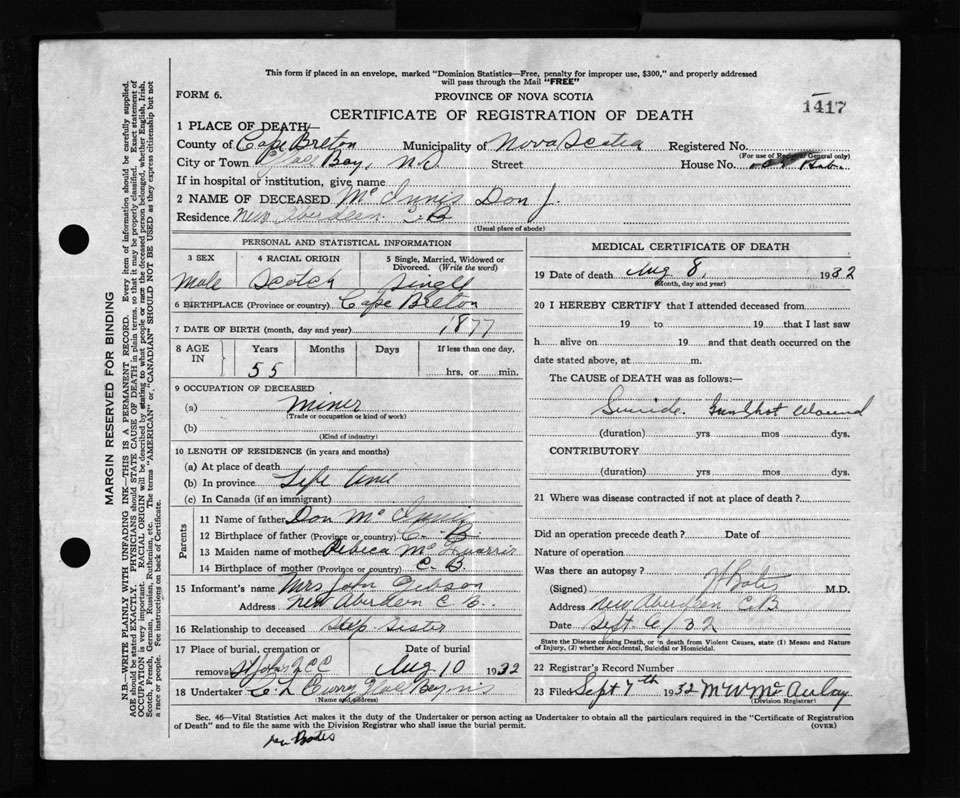 This form if placed in an envelope, marked "Dominion Statistics—Free, penalty for improper use, $300," and properly addressed
will pass through the Mail "FREE"
FORM 6.
PROVINCE OF NOVA SCOTIA
1417
CERTIFICATE OF REGISTRATION OF DEATH
1 PLACE OF DEATH
County of Cape Breton Municipality of Nova Scotia Registered No.
(For use of Registrar General only)
City or Town Glace Bay, N.S Street House No.
If in hospital or institution, give name
2 NAME OF DECEASED Mc Innis Don J.
Residence New Aberdeen C.B
(Usual place of abode)
PERSONAL AND STATISTICAL INFORMATION
3 SEX 4 RACIAL ORIGIN 5 Single, Married, Widowed or
Divorced. (Write the word)
Male Scotch Single
6 BIRTHPLACE (Province or country) Cape Breton
7 DATE OF BIRTH (month, day and year) 1877
8 AGE IN Years Months Days If less than one day,
55 hrs. or min.
9 OCCUPATION OF DECEASED
(a) Miner
(Trade or occupation or kind of work)
(b)
(Kind of industry)
10 LENGTH OF RESIDENCE (in years and months)
(a) At place of death
(b) In province Life time
(c) In Canada (if an immigrant)
Parents
11 Name of father Don Mc Innis
12 Birthplace of father (Province or country) C. B.
13 Maiden name of mother Rebeca Mc Quarrie
14 Birthplace of mother (Province or country) C. B.
15 Informant's name Mrs John Gibson
Address New Aberdeen C. B.
16 Relationship to deceased Step Sister
17 Place of burial, cremation or Date of burial
removal Aug 10 1932
18 Undertaker C. L. Curry Glace Bay N.S
(Name and address)
MEDICAL CERTIFICATE OF DEATH
19 Date of death Aug 8, 1932
(Month, day and year)
20 I HEREBY CERTIFY that I attended deceased from
19 to 19 that I last saw
h alive on 19 and that death occurred on the
date stated above, at m.
The CAUSE of DEATH was as follows:—
Suicide. Gunshot Wound
(duration) yrs mos dys.
CONTRIBUTORY
(duration) yrs mos dys.
21 Where was disease contracted if not at place of death?
Did an operation precede death? Date of
Nature of operation
Was there an autopsy?
(Signed) M.D.
Address New Aberdeen C.B
Date Sept 6/32
State the Disease causing Death, or in death from Violent Causes, state (1) Means and Nature
of Injury, (2) whether Accidental, Suicidal or Homicidal.
22 Registrar's Record Number
23 Filed Sept 7th 1932 M W Mc Aulay
(Division Registrar)
Sec. 46—Vital Statistics Act makes it the duty of the Undertaker or person acting as Undertaker to obtain all the particulars required in the "Certificate of Registration
of Death" and to file the same with the Division Registrar who shall issue the burial permit.
(OVER)
MARGIN RESERVED FOR BINDING
N.B.—WRITE PLAINLY WITH UNFADING INK—THIS IS A PERMANENT RECORD. Every item of information should be carefully supplied.
AGE should be stated EXACTLY. PHYSICIANS should STATE CAUSE OF DEATH in plain terms, so that it may be properly classified. Exact statement of
OCCUPATION is very important. RACIAL ORIGIN will be described by stating to what people or race the deceased person belonged, whether English, Irish,
Scotch, French, German, Russian, Ruthenian, etc. The terms "AMERICAN" or "CANADIAN" SHOULD NOT BE USED as they express citizenship but not
a race or people. Fee instructions on back of Certificate.